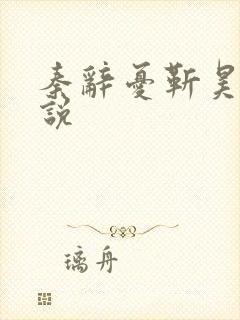 秦辭憂靳昊
說
璃舟